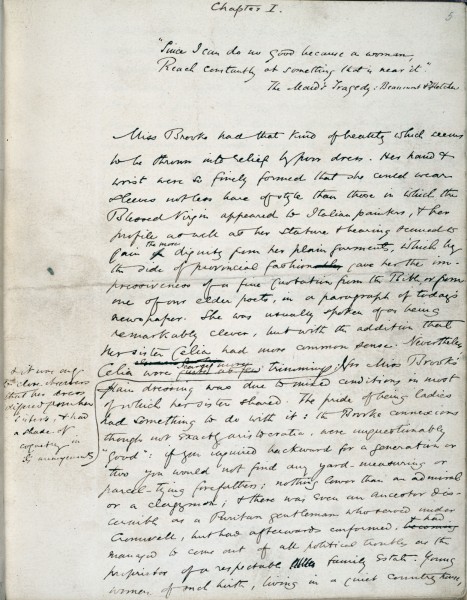 Chapter I.
5
"Since I can do no good because a woman,
Reach constantly at something that is near it"
The Maid's Tragedy: Beaumont & Fletcher
Miss Brooke had that kind of beauty which seems
to be thrown into relief by poor dress. Her hand &
wrist were so finely formed that she could wear
sleeves not less bare of style than those in which the
Blessed Virgin appeared to Italian painters, & her
profile as well as her stature & bearing seemed to
the more
gain dignity from her plain garments, which by
the side of provincial fashion gave her the im-
pressiveness of a fine quotation from the Bible, or from
one of our elder poets, in a paragraph of today's
newspaper. She was usually spoken of as being
remarkably clever, but with the addition that
her sister Celia had more common sense. Nevertheless
scarcely more
Celia wore trimmings;
for Miss Brooke's
plain dressing was due to mixed conditions, in most
of which her sister shared. The pride of being ladies
had something to do with it: the Brooke connexions
though not exactly aristocratic, were unquestionably
"good": if you inquired backward for a generation or
two you would not find any yard-measuring or
parcel-tying forefathers; nothing lower than an admiral
or a clergyman; & there was even an ancestor dis-
cernible as a Puritan gentleman who served under
Cromwell, but had afterwards conformed, & had
managed to come out of all political troubles as the
proprietor of a respectable family estate. Young
women of such birth, living in a quiet country house,
& it was only
to close observers
that her dress
differed from her
sister's, & had
a shade of
coquetry in
its arrangements